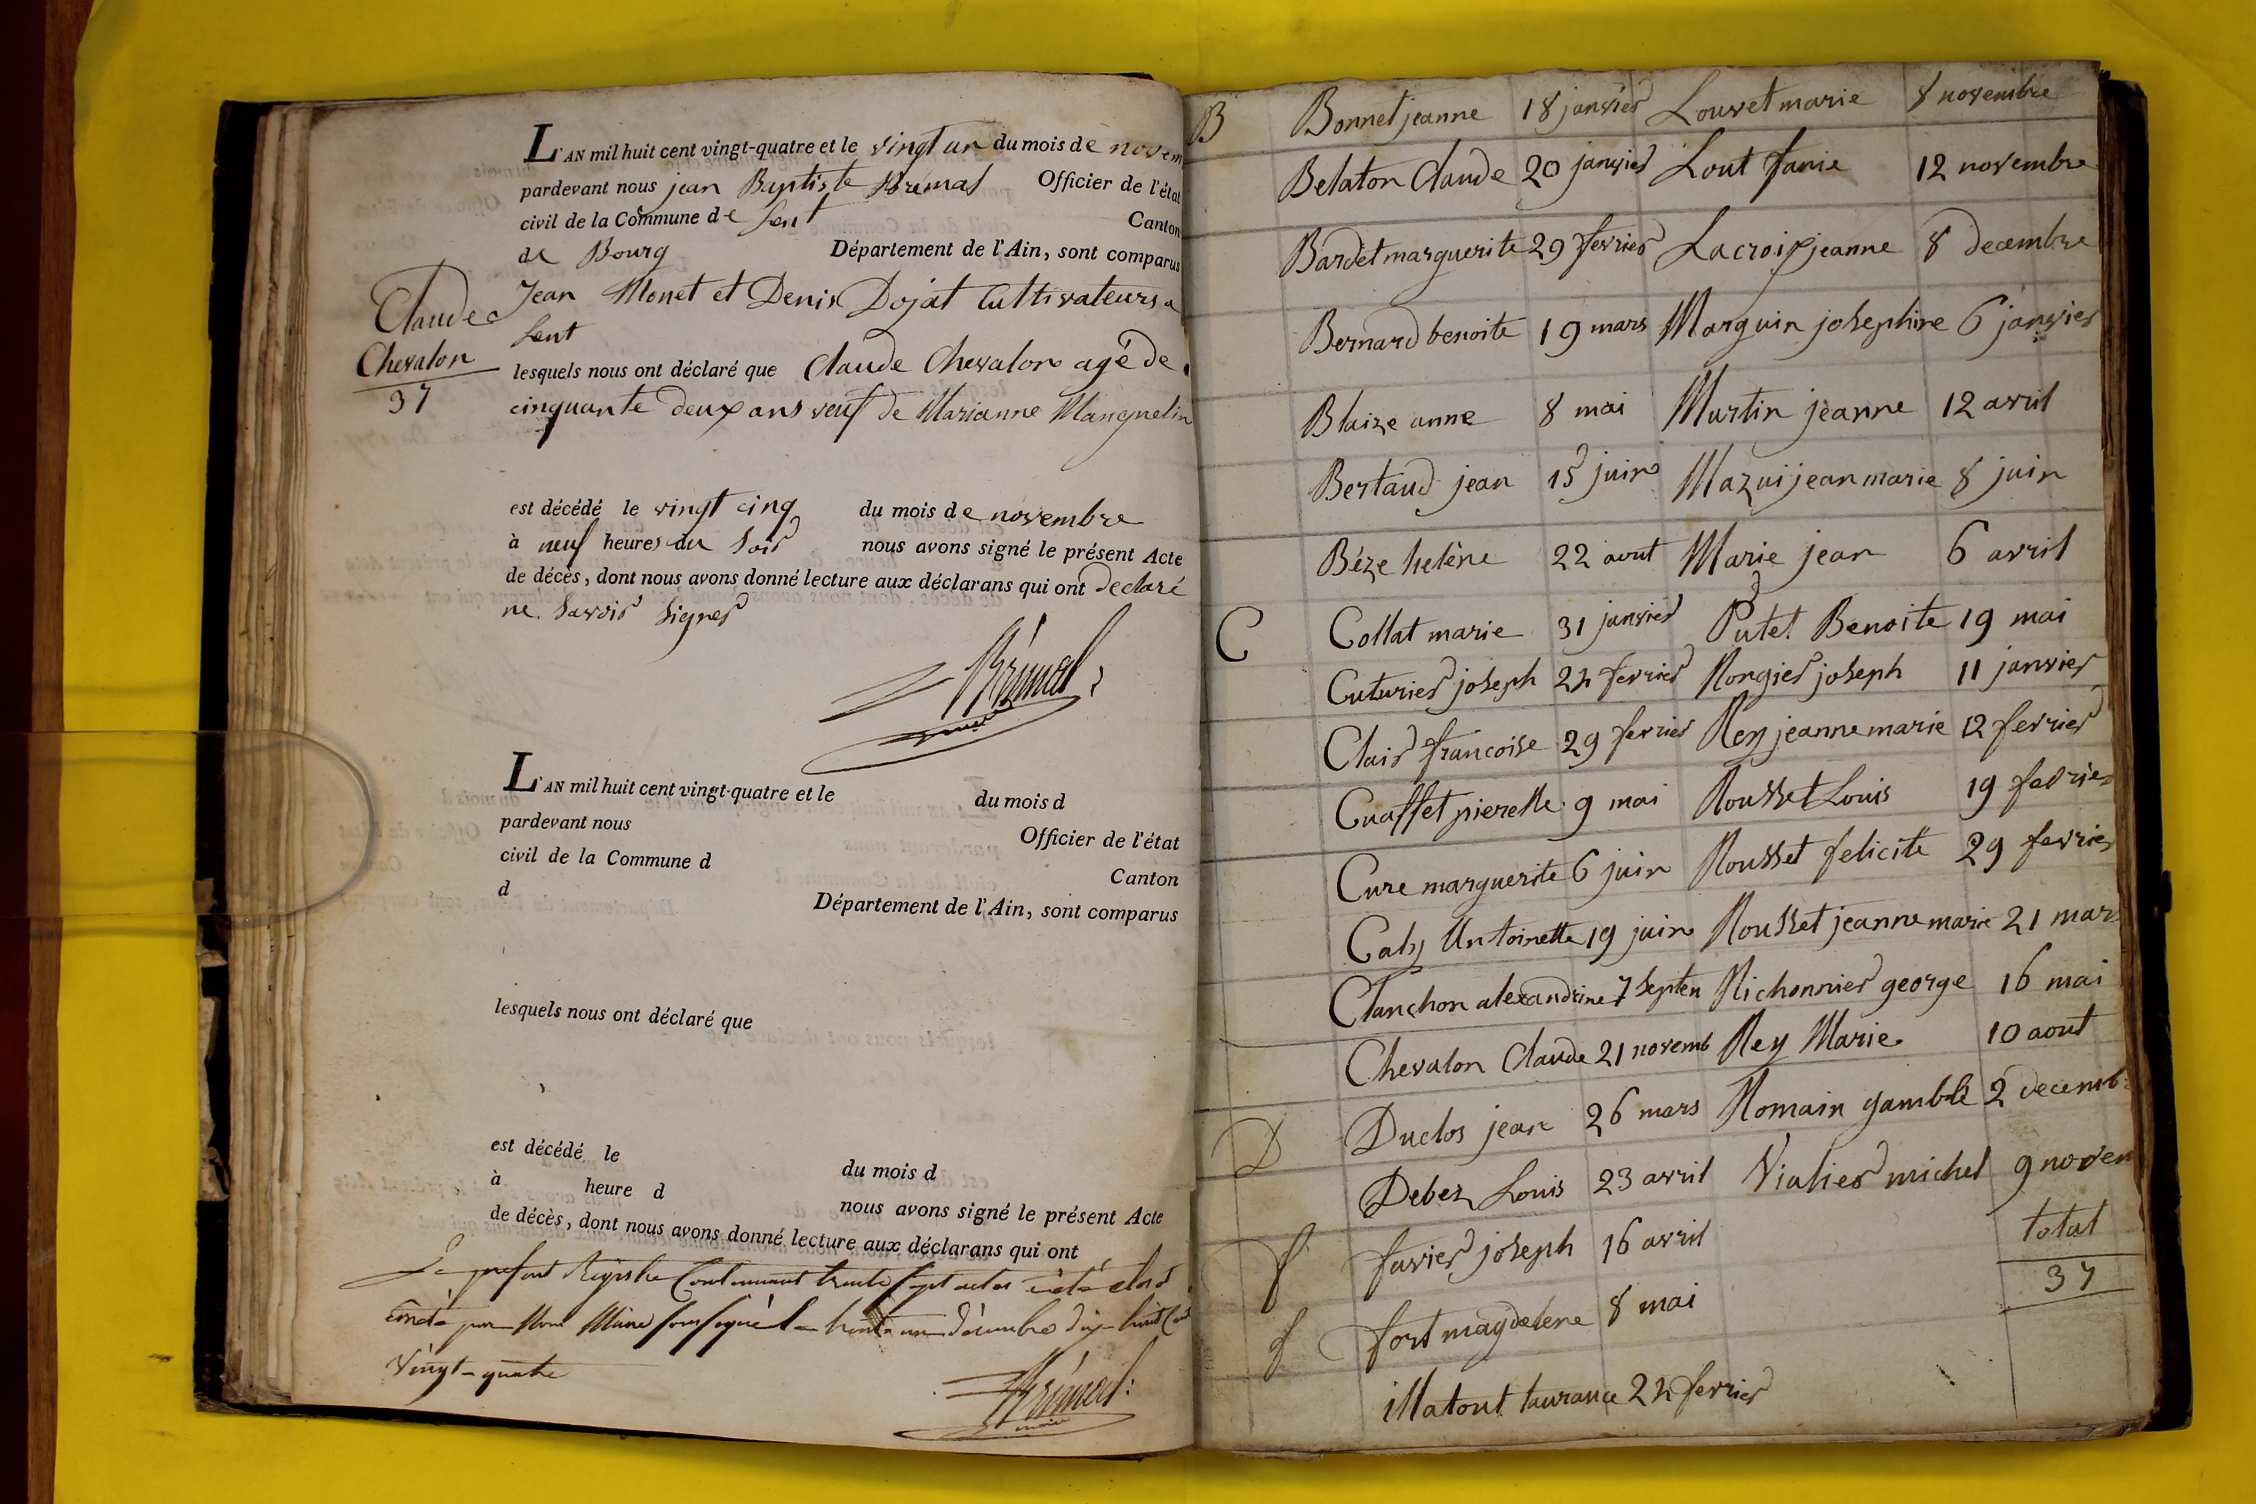 L'AN mil huit cent vingt-quatre et le vingt un du mois de novem
pardevant nous jean Baptiste Brémal Officier de l'état
civil de la Commune de Sent Canton
de Bourg Département de l'Ain, sont comparus
Jean Monet et Denis Dojat Cultivateurs a
Sent
Claude
Chevalon
37
lesquels nous ont déclaré que Claude Chevalon agé de
cinquante deux ans veuf de Marianne Mangnelin
est décédé le vingt cinq du mois de novembre
à neuf heures du Soir nous avons signé le présent Acte
de décès, dont nous avons donné lecture aux déclarans qui ont declaré
ne Savoir Signer
Brémal
maire
L'AN mil huit cent vingt-quatre et le du mois d
pardevant nous Officier de l'état
civil de la Commune d Canton
d Département de l'Ain, sont comparus
lesquels nous ont déclaré que
est décédé le du mois d
à heure d nous avons signé le présent Acte
de décès, dont nous avons donné lecture aux déclarans qui ont
Le present Registre Contenant trente Sept actes a été clos
arrêté par Nous Maire soussigné le trente un décembre dix huit Cent
Vingt-quatre
Brémal
maire
B Bonnet jeanne 18 janvier Louvet marie 8 novembre
Belaton Claude 20 janvier Lout fanie 12 novembre
Bardet marguerite 29 fevrier Lacroix jeanne 8 decembre
Bernard benoite 19 mars Marguin josephine 6 janvier
Blaize anne 8 mai Martin jeanne 12 avril
Bertaud jean 15 juin Mazui jean marie 8 juin
Béze heléne 22 aout Marie jean 6 avril
C Collat marie 31 janvier Putet Benoite 19 mai
Cuturier joseph 22 fevrier Rongier joseph 11 janvier
Clair francoise 29 fevrier Rey jeanne marie 12 fevrier
Cuaffet pierette 9 mai Rousset Louis 19 fevrier
Cure marguerite 6 juin Rousset felicite 29 fevrier
Caly Antoinette 19 juin Rousset jeanne marie 21 mars
Clanchon alexandrine 7 Septem Richonnier george 16 mai
Chevalon Claude 21 novemb Rey Marie 10 aout
D Duclos jean 26 mars Romain gamble 2 decemb
Debez Louis 23 avril Vialier michel 9 novem
f favier joseph 16 avril total
f fort magdelene 8 mai 37
Matout laurance 22 fevrier